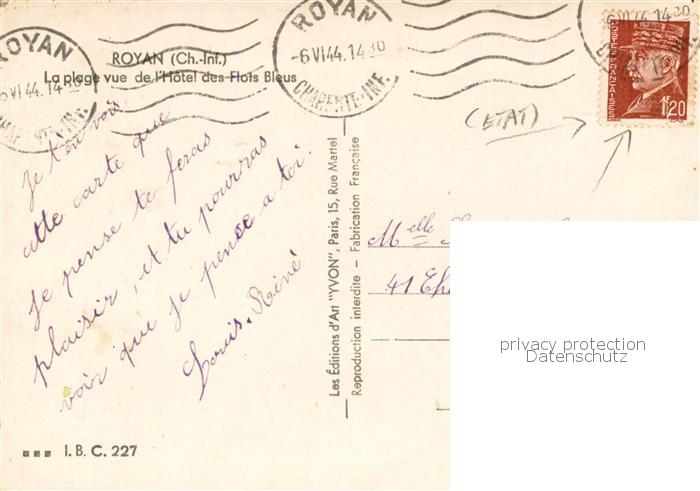 ROYAN
6 VI 44. 14 30
CHARENTE-INF.
ROYAN
-6 VI 44. 14 30
CHARENTE-INF.
6 VI 44 14 30
POSTES FRANÇAISES
1F20
ROYAN (Ch.-Inf.)
La plage vue de l'Hôtel des Flots Bleus
(ETAT)
Je t'envois
cette carte que
je pense te feras
plaisir, et tu pourras
voir que je pense a toi.
Louis. Réné
Les Éditions d'Art "YVON", Paris, 15, Rue Martel
Reproduction interdite - Fabrication Française
Melle
41
privacy protection
Datenschutz
I. B. C. 227